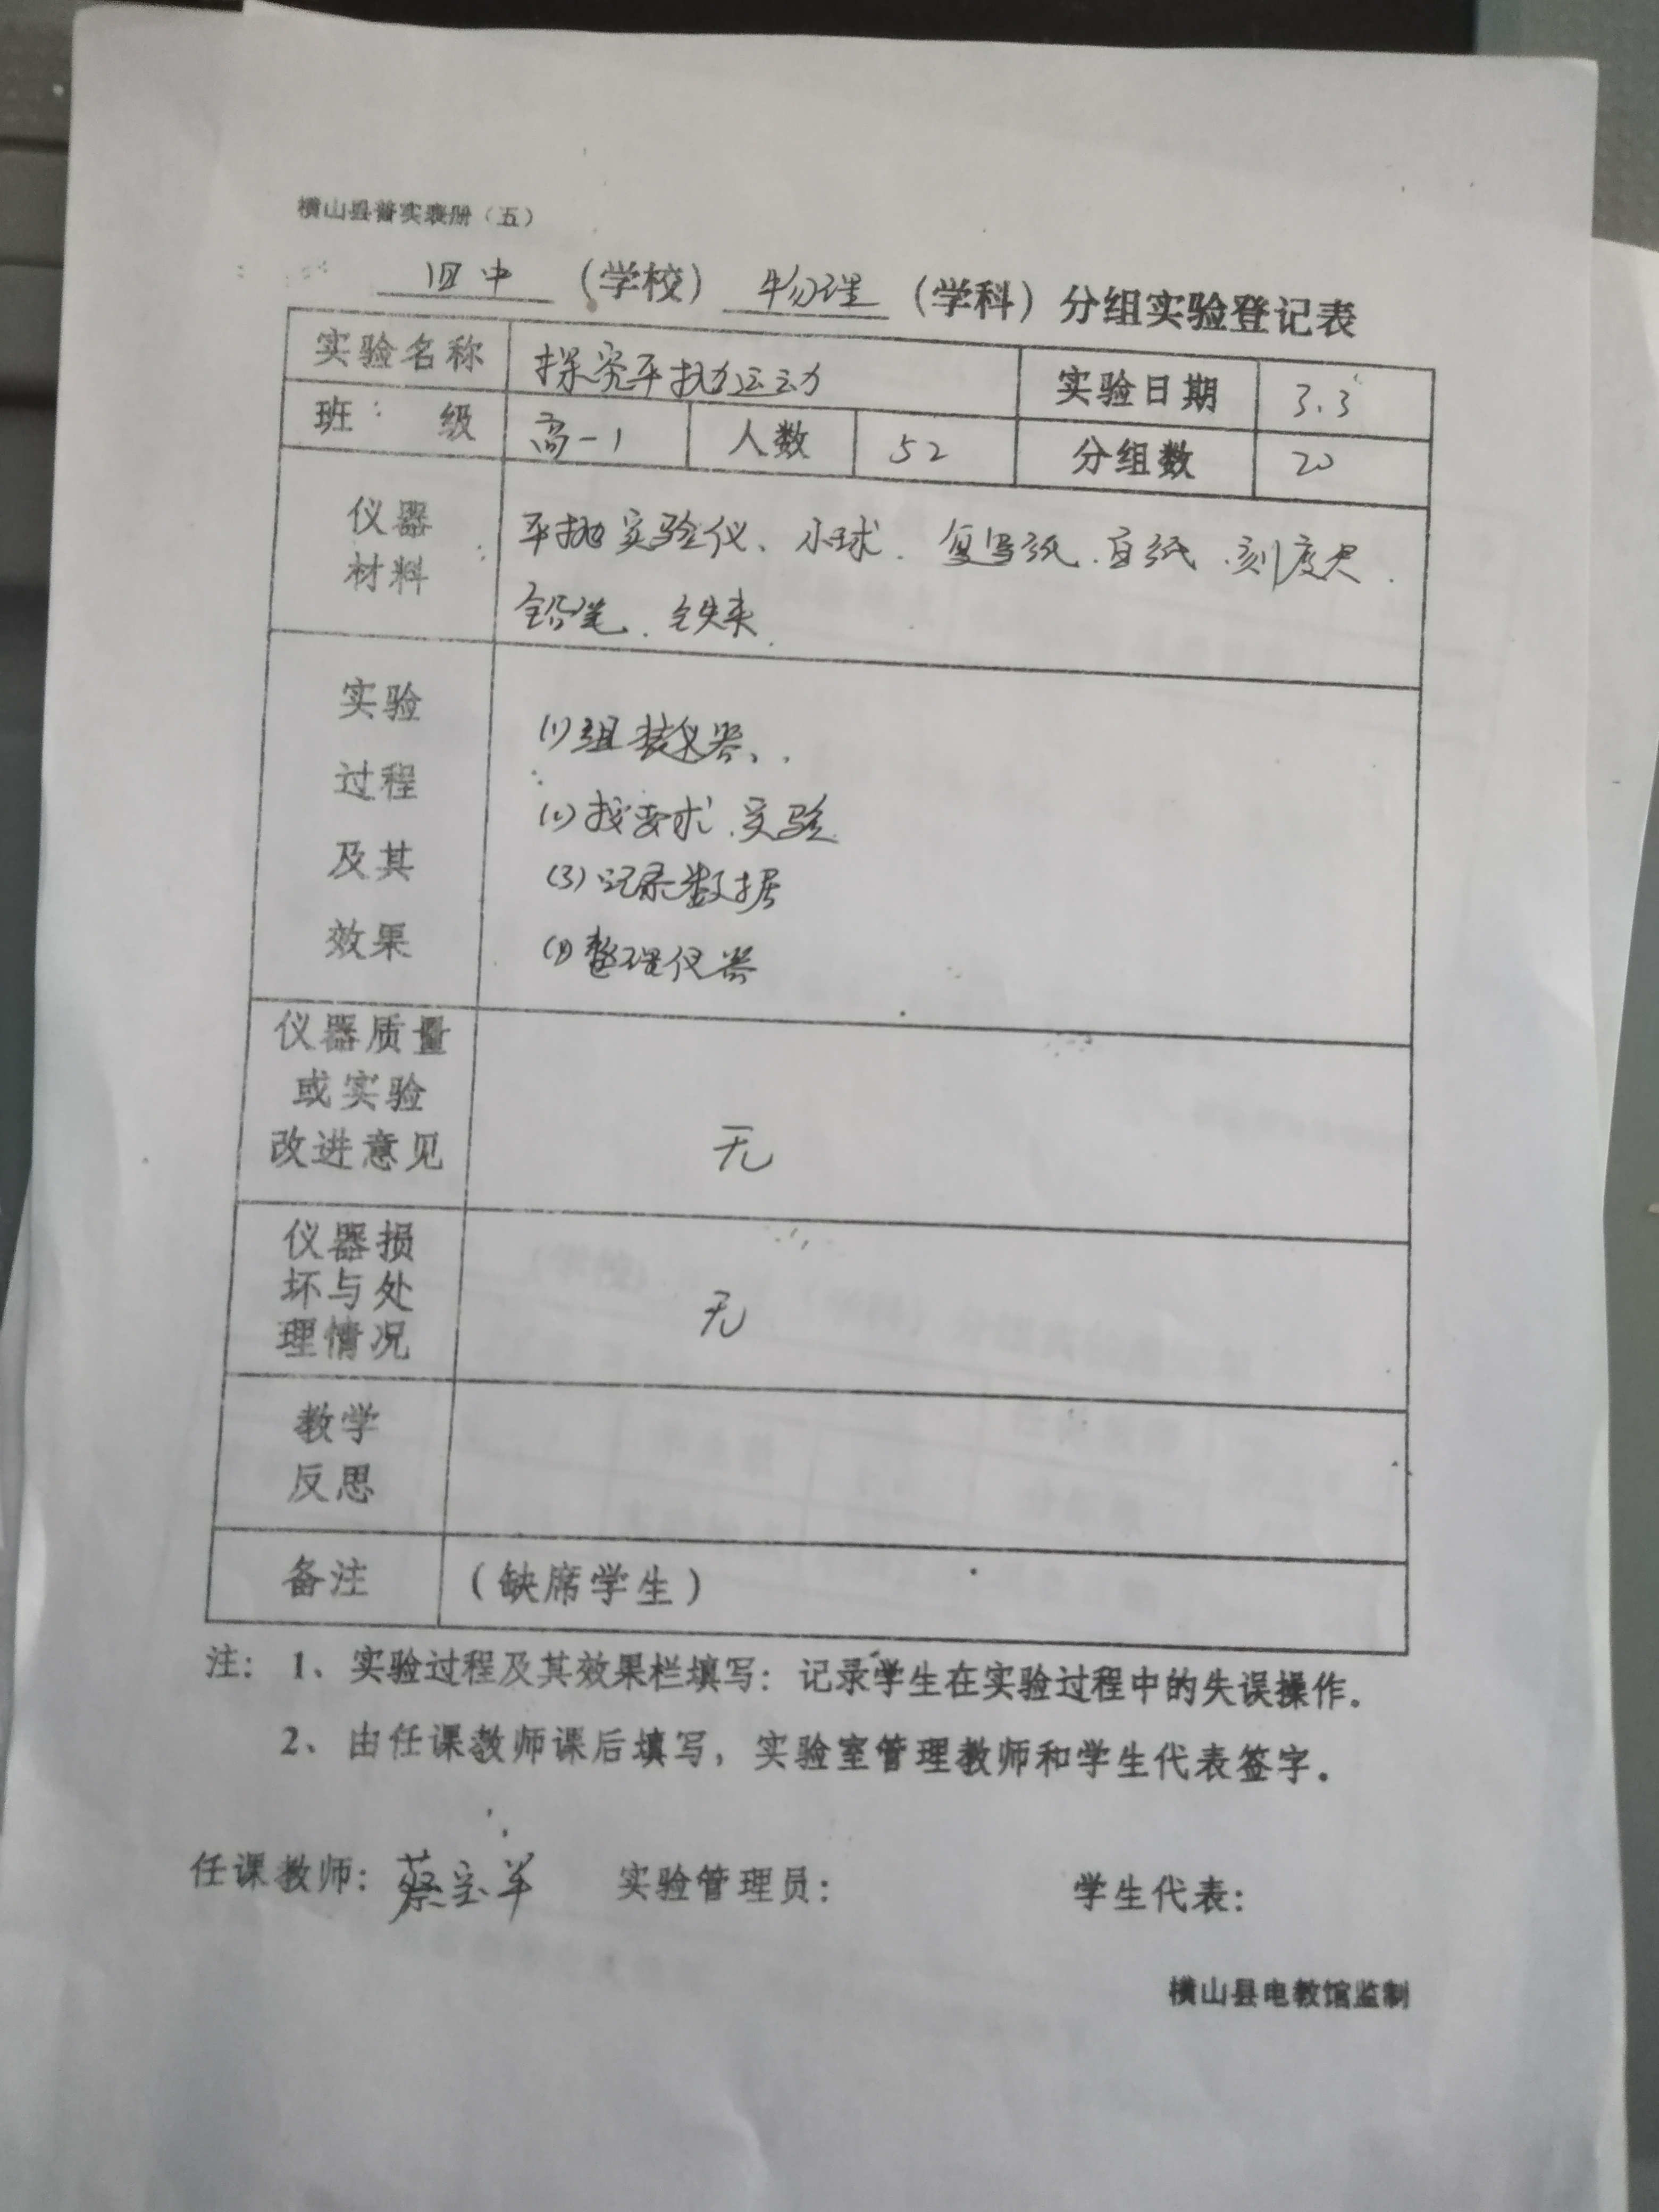 横山县普实表册（五）
四中（学校）物理（学科）分组实验登记表
实验名称 探究平抛运动 实验日期 3.3
班级 高一1 人数 52 分组数 20
仪器
材料
平抛实验仪、小球、复写纸、白纸、刻度尺、
铅笔、铁夹
实验
过程
及其
效果
(1)组装仪器、
(2)按要求实验
(3)记录数据
(4)整理仪器
仪器质量
或实验
改进意见
无
仪器损
坏与处
理情况
无
教学
反思
备注 （缺席学生）
注：1、实验过程及其效果栏填写：记录学生在实验过程中的失误操作。
2、由任课教师课后填写，实验室管理教师和学生代表签字。
任课教师：蔡宝军 实验管理员： 学生代表：
横山县电教馆监制